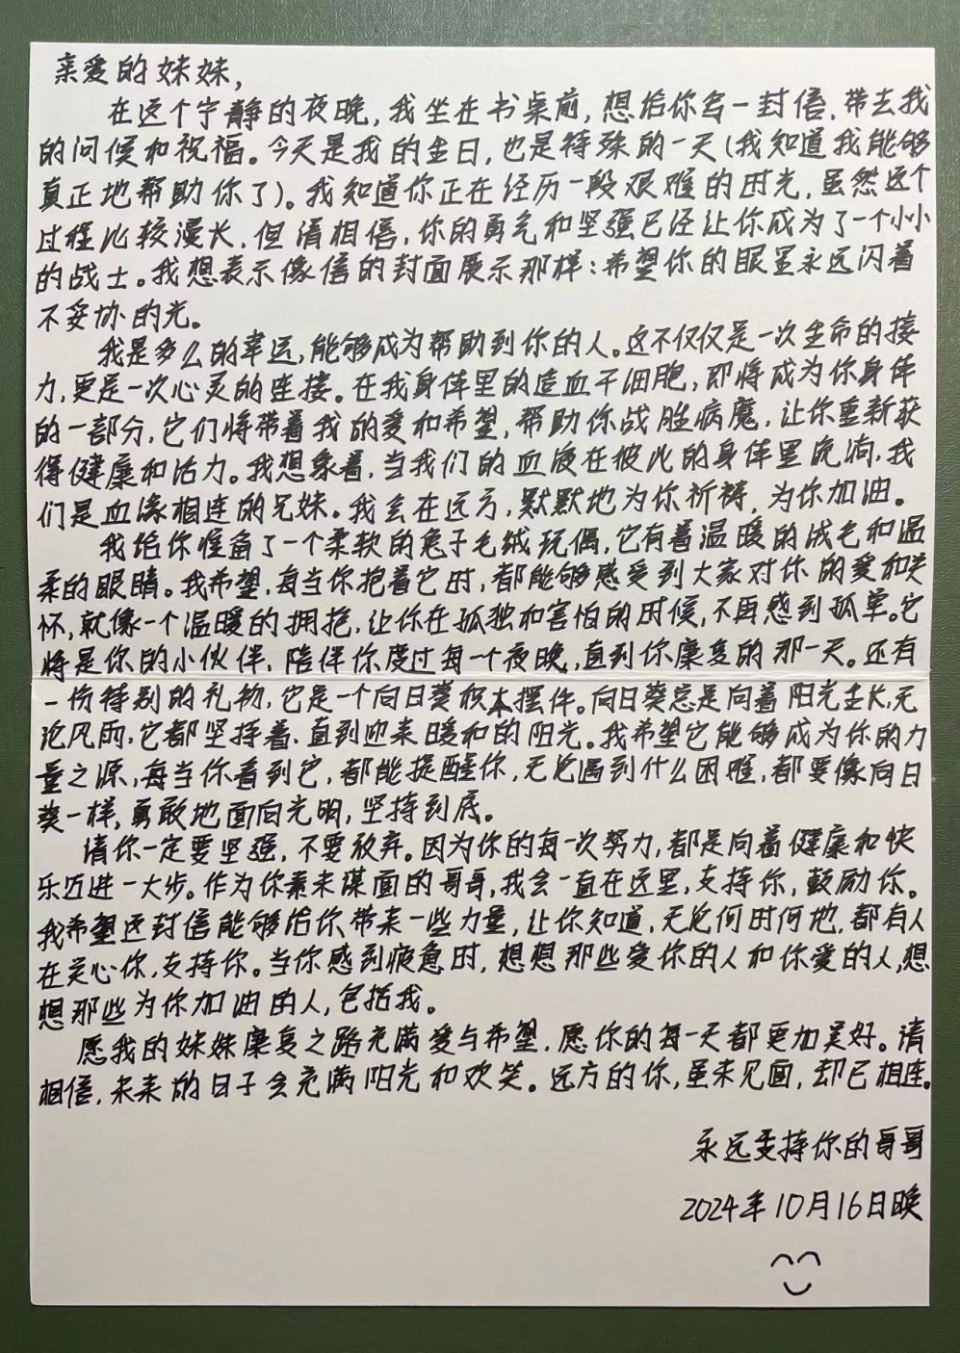 亲爱的妹妹,
在这个宁静的夜晚,我坐在书桌前,想给你写一封信,带去我
的问候和祝福。今天是我的生日,也是特殊的一天(我知道我能够
真正地帮助你了)。我知道你正在经历一段艰难的时光,虽然这个
过程比较漫长,但请相信,你的勇气和坚强已经让你成为了一个小小
的战士。我想表示像信的封面展示那样:希望你的眼里永远闪着
不妥协的光。
我是多么的幸运,能够成为帮助到你的人。这不仅仅是一次生命的接
力,更是一次心灵的连接。在我身体里的造血干细胞,即将成为你身体
的一部分,它们将带着我的爱和希望,帮助你战胜病魔,让你重新获
得健康和活力。我想象着,当我们的血液在彼此的身体里流淌,我
们是血缘相连的兄妹。我会在远方,默默地为你祈祷,为你加油。
我给你准备了一个柔软的兔子毛绒玩偶,它有着温暖的绒毛和温
柔的眼睛。我希望,每当你抱着它时,都能够感受到大家对你的爱和关
怀,就像一个温暖的拥抱,让你在孤独和害怕的时候,不再感到孤单。它
将是你的小伙伴,陪伴你度过每一个夜晚,直到你康复的那一天。还有
一份特别的礼物,它是一个向日葵积木摆件。向日葵总是向着阳光生长,无
论风雨,它都坚持着,直到迎来暖和的阳光。我希望它能够成为你的力
量之源,每当你看到它,都能提醒你,无论遇到什么困难,都要像向日
葵一样,勇敢地面向光明,坚持到底。
请你一定要坚强,不要放弃。因为你的每一次努力,都是向着健康和快
乐迈进一大步。作为你素未谋面的哥哥,我会一直在这里,支持你,鼓励你。
我希望这封信能够给你带来一些力量,让你知道,无论何时何地,都有人
在关心你,支持你。当你感到疲惫时,想想那些爱你的人和你爱的人,想
想那些为你加油的人,包括我。
愿我的妹妹康复之路充满爱与希望,愿你的每一天都更加美好。请
相信,未来的日子会充满阳光和欢笑。远方的你,虽未见面,却已相连。
永远支持你的哥哥
2024年10月16日晚